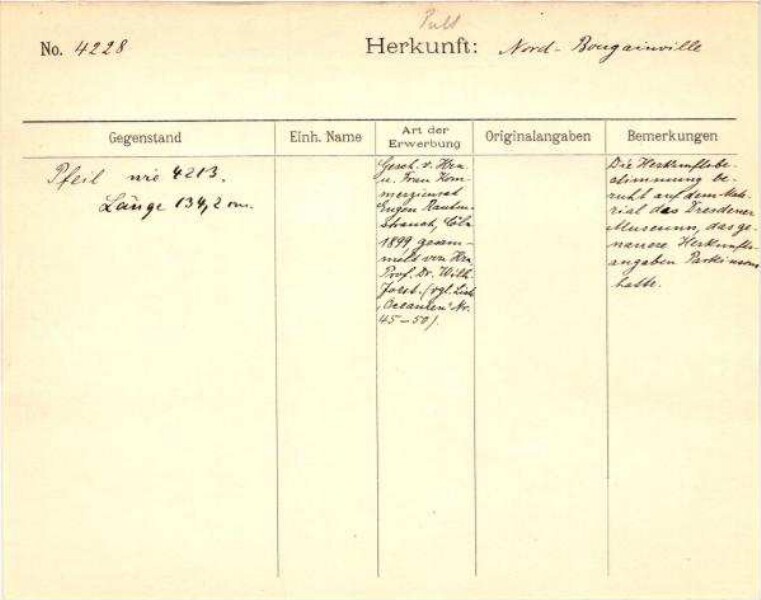 Pult
No. 4228
Herkunft: Nord-Bougainville
Gegenstand
Einh. Name
Art der Erwerbung
Originalangaben
Bemerkungen
Pfeil wie 4213.
Länge 134,2 cm.
Gesch. v. Hrn.
u. Frau Kom-
merzienrat
Eugen Rauten-
strauch, Cöln
1899, gesam-
melt von Hrn
Prof. Dr. Wilh.
Joest. (vgl. List.
"Ozeanien" Nr.
45–50).
Die Herkunftsbe-
stimmung be-
ruht auf dem Mate-
rial des Dresdener
Museums, das ge-
nauere Herkunfts-
angaben Parkinsons
hatte.